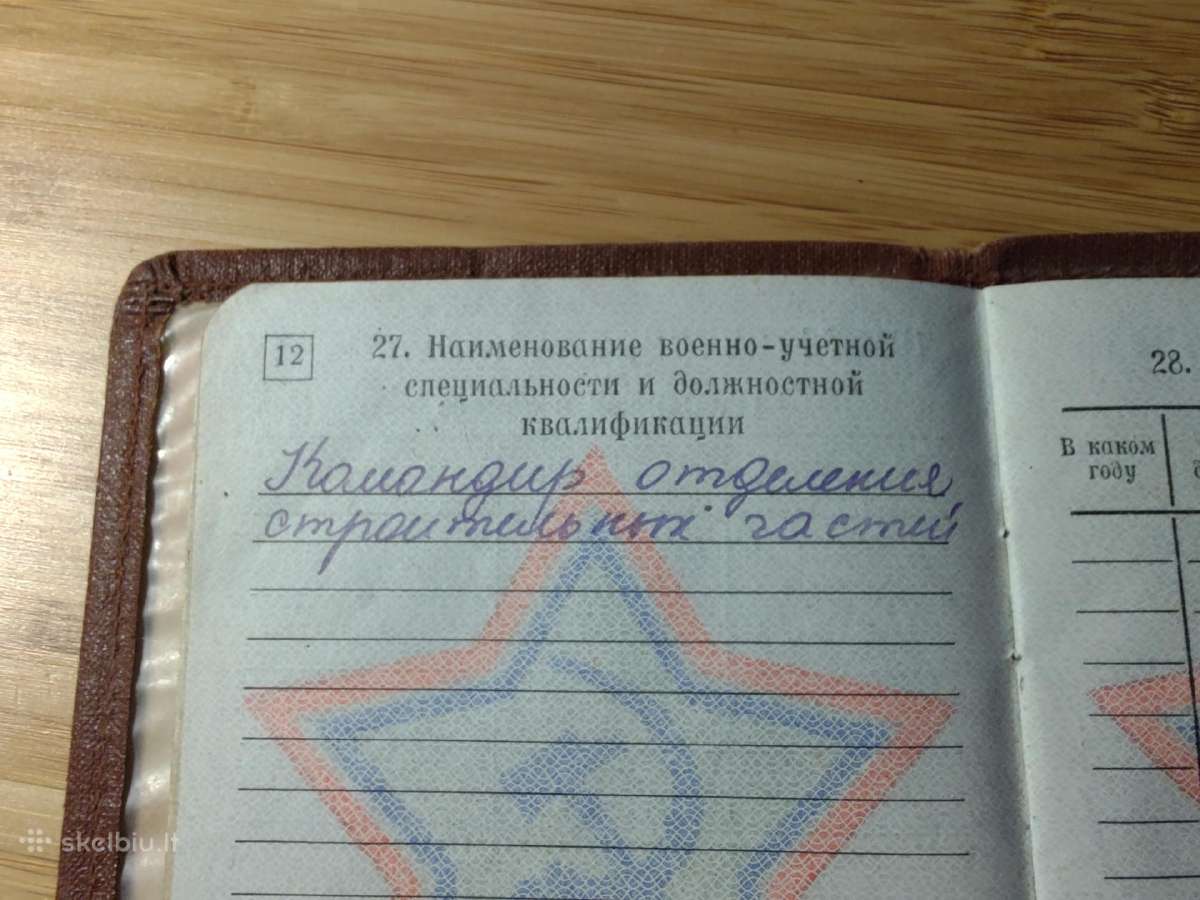 12
27. Наименование военно-учетной
специальности и должностной
квалификации
Командир отделения
строительных частей
28.
В каком
году
skelbiu.lt